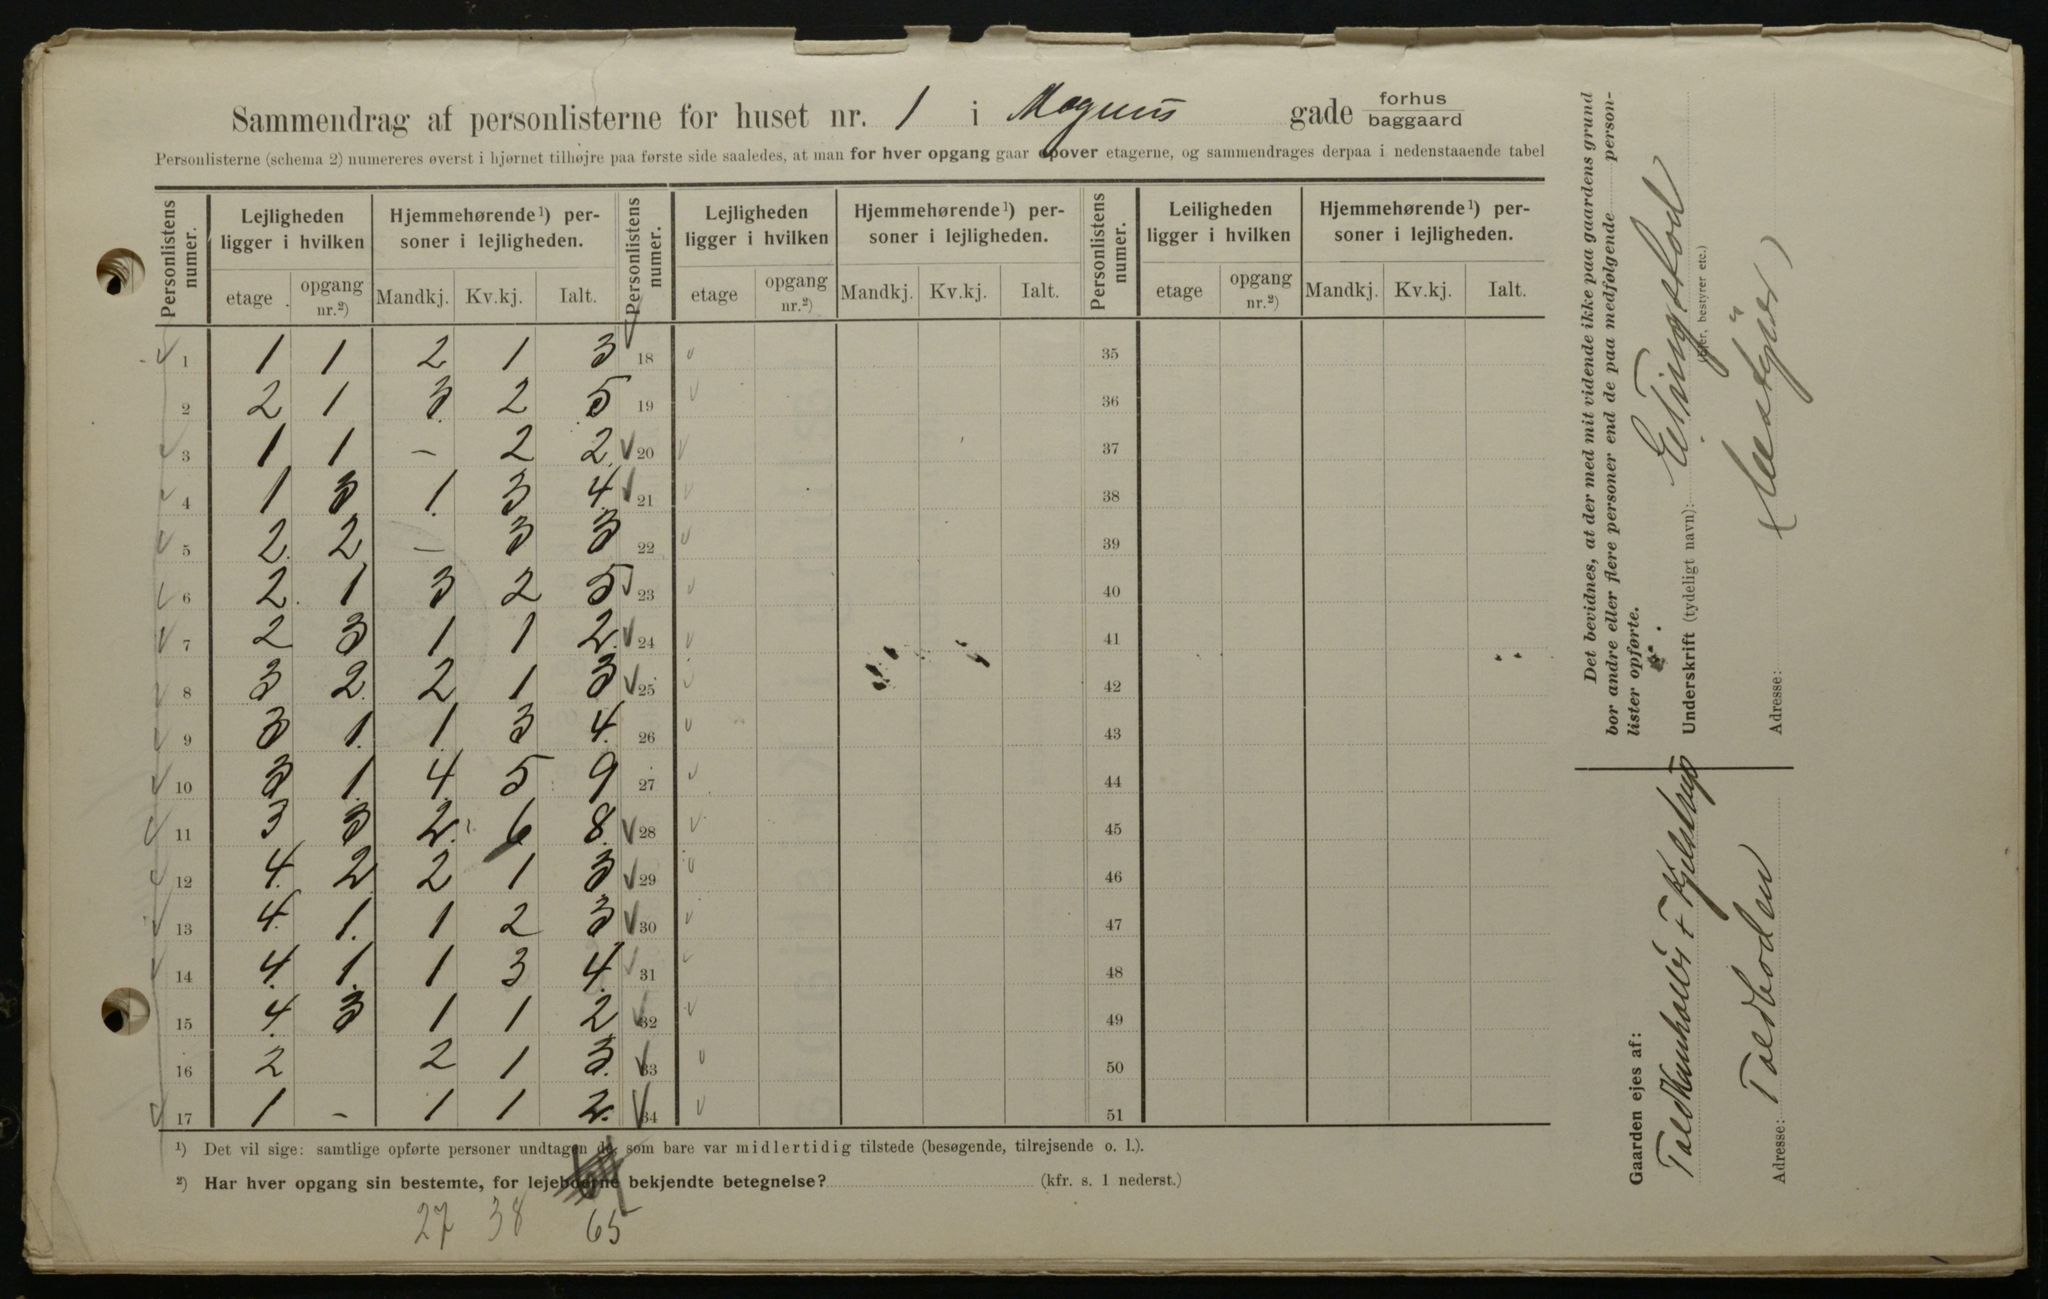 Sammendrag af personlisterne for huset nr. 1 i Magnus gade forhus baggaard
Personlisterne (schema 2) numereres øverst i hjørnet tilhøjre paa første side saaledes, at man for hver opgang gaar opover etagerne, og sammendrages derpaa i nedenstaaende tabel
Personlistens numer. Lejligheden ligger i hvilken Hjemmehørende¹) personer i lejligheden. Personlistens numer. Lejligheden ligger i hvilken Hjemmehørende¹) personer i lejligheden. Personlistens numer. Leiligheden ligger i hvilken Hjemmehørende¹) personer i lejligheden.
etage opgang nr.²) Mandkj. Kv.kj. Ialt. etage opgang nr.²) Mandkj. Kv.kj. Ialt. etage opgang nr.²) Mandkj. Kv.kj. Ialt.
1 1 1 2 1 3 18 35
2 2 1 3 2 5 19 36
3 1 1 – 2 2 20 37
4 1 3 1 3 4 21 38
5 2 2 – 3 3 22 39
6 2 1 3 2 5 23 40
7 2 3 1 1 2 24 41
8 3 2 2 1 3 25 42
9 3 1 1 3 4 26 43
10 3 1 4 5 9 27 44
11 3 3 2 6 8 28 45
12 4 2 2 1 3 29 46
13 4 1 1 2 3 30 47
14 4 1 1 3 4 31 48
15 4 3 1 1 2 32 49
16 2 2 1 3 33 50
17 1 – 1 1 2 34 51
¹) Det vil sige: samtlige opførte personer undtagen de, som bare var midlertidig tilstede (besøgende, tilrejsende o. l.).
²) Har hver opgang sin bestemte, for lejeboerne bekjendte betegnelse? (kfr. s. 1 nederst.)
27 38 65
Det bevidnes, at der med mit vidende ikke paa gaardens grund
bor andre eller flere personer end de paa medfølgende personlister opførte.
Underskrift (tydeligt navn): E Tingstad
(Ejer, bestyrer etc.)
(Bestyrer)
Adresse:
Gaarden ejes af:
& Kjelstrup
Adresse: Toldboden